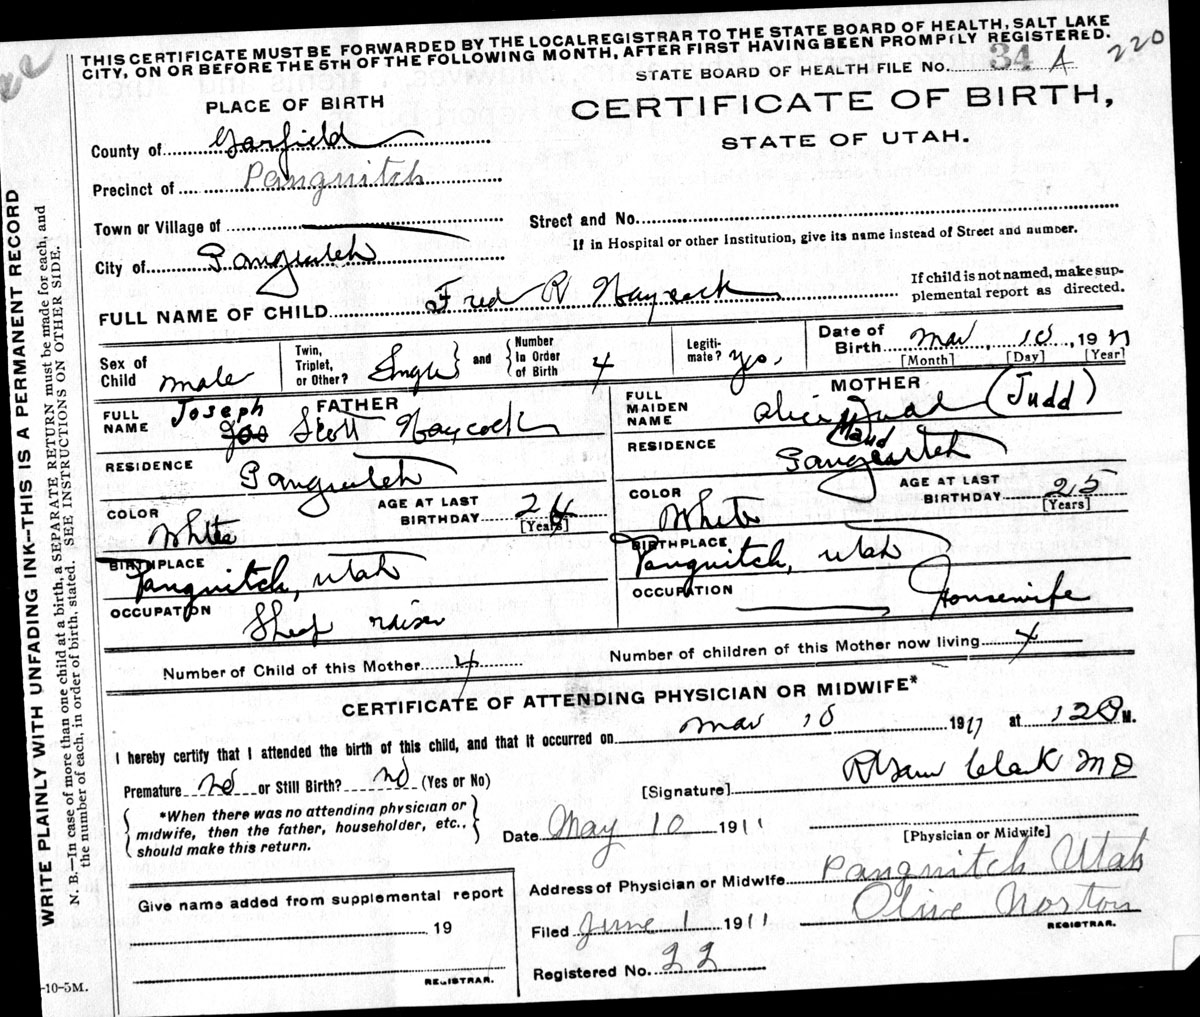 THIS CERTIFICATE MUST BE FORWARDED BY THE LOCALREGISTRAR TO THE STATE BOARD OF HEALTH, SALT LAKE
CITY, ON OR BEFORE THE 5TH OF THE FOLLOWING MONTH, AFTER FIRST HAVING BEEN PROMPTLY REGISTERED.
STATE BOARD OF HEALTH FILE NO. 34 A 220
PLACE OF BIRTH
CERTIFICATE OF BIRTH,
STATE OF UTAH.
County of Garfield
Precinct of Panguitch
Town or Village of
Street and No.
If in Hospital or other Institution, give its name instead of Street and number.
City of Panguitch
FULL NAME OF CHILD Fred R Haycock
If child is not named, make sup-
plemental report as directed.
Sex of Child male
Twin, Triplet, or Other? Single and Number In Order of Birth 4
Legiti-mate? yes.
Date of Birth Mar 10, 1911
[Month] [Day] [Year]
FATHER
FULL NAME Joseph Jos Scott Haycock
MOTHER
FULL MAIDEN NAME Alice Maud Judd (Judd)
RESIDENCE Panguitch
RESIDENCE Panguitch
COLOR White
AGE AT LAST BIRTHDAY 26
[Years]
COLOR White
AGE AT LAST BIRTHDAY 25
[Years]
BIRTHPLACE Panguitch, Utah
BIRTHPLACE Panguitch, Utah
OCCUPATION Sheep raiser
OCCUPATION Housewife
Number of Child of this Mother 4
Number of children of this Mother now living 4
CERTIFICATE OF ATTENDING PHYSICIAN OR MIDWIFE*
I hereby certify that I attended the birth of this child, and that it occurred on Mar 10 1911 at 12 M.
Premature no or Still Birth? no (Yes or No)
[Signature] Clark MD
*When there was no attending physician or
midwife, then the father, householder, etc.,
should make this return.
Date May 10 1911
[Physician or Midwife]
Address of Physician or Midwife Panguitch Utah
Give name added from supplemental report
19
REGISTRAR.
Filed June 1 1911 Olive Norton
REGISTRAR.
Registered No. 22
-10-5M.
WRITE PLAINLY WITH UNFADING INK—THIS IS A PERMANENT RECORD
N. B.—In case of more than one child at a birth, a SEPARATE RETURN must be made for each, and
the number of each, in order of birth, stated. SEE INSTRUCTIONS ON OTHER SIDE.